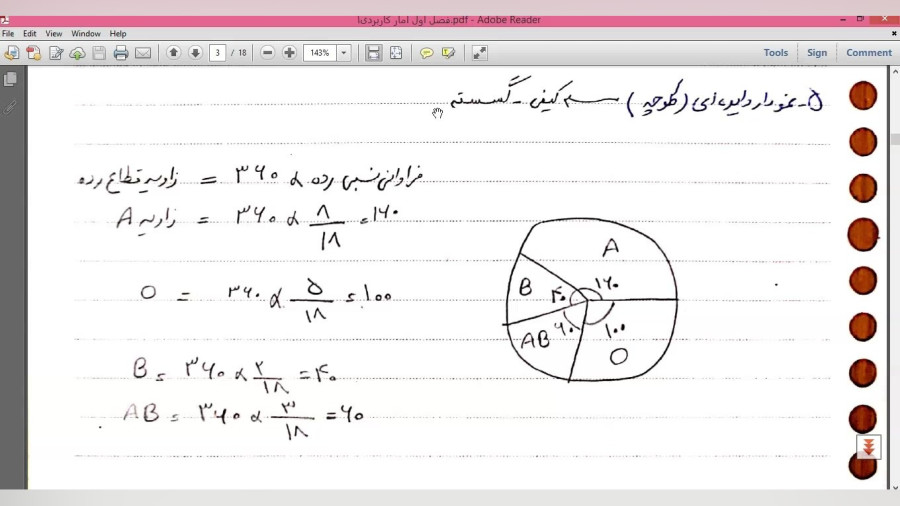 فصل اول امار کاربردی۱.pdf - Adobe Reader
File Edit View Window Help
3 / 18 143% Tools Sign Comment
۵- نمودار دایره ای (کلوچه) کیفی - گسسته
زاویه قطاع رده = ۳۶۰ × فراوانی نسبی رده
زاویه A = ۳۶۰ × ۸/۱۸ = ۱۶۰
O = ۳۶۰ × ۵/۱۸ = ۱۰۰
B = ۳۶۰ × ۲/۱۸ = ۴۰
AB = ۳۶۰ × ۳/۱۸ = ۶۰
A
B ۴۰ ۱۶۰
AB ۶۰ ۱۰۰
O